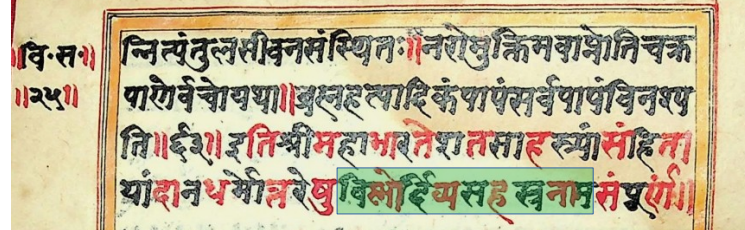 ॥वि॰स॰॥ न्नित्यंतुलसीवनसंस्थितः॥नरोमुक्तिमवाप्नोतिचक्र
॥२५॥ पाणेर्वचोयथा॥ब्रह्महत्यादिकंपापंसर्वपापंविनश्य
ति॥६२॥इतिश्रीमहाभारतेशतसाहस्र्यांसंहिता
यांदानधर्मोत्तरेषुविष्णोर्दिव्यसहस्रनामसंपूर्ण॥